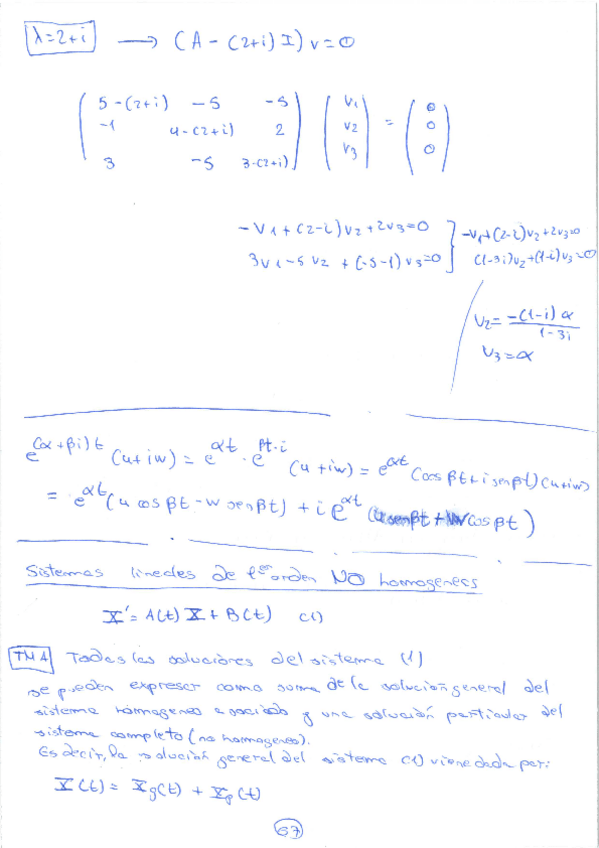 λ=2+i → (A - (2+i) I) v = 0
5-(2+i) -5 -5 v1 0
-1 4-(2+i) 2 v2 = 0
3 -5 3-(2+i) v3 0
-v1+(2-i)v2+2v3=0 } -v1+(2-i)v2+2v3=0
3v1-5v2+(-5-1)v3=0 (1-3i)v2+(1-i)v3=0
v2= -(1-i)α / 1-3i
v3=α
e^(α+βi)t (u+iw) = e^αt · e^βt·i (u+iw) = e^αt (cos βt+i senβt)(u+iw)
= e^αt (u cos βt - w senβt) + i e^αt (u senβt + w cos βt)
Sistemas lineales de 1er orden NO homogeneos
X' = A(t) X + B(t) (1)
TMA Todas las soluciones del sistema (1)
se pueden expresar como suma de la solución general del
sistema homogeneo asociado y una solución particular del
sistema completo (no homogeneo).
Es decir, la solución general del sistema (1) viene dada por:
X(t) = Xg(t) + Xp(t)
67